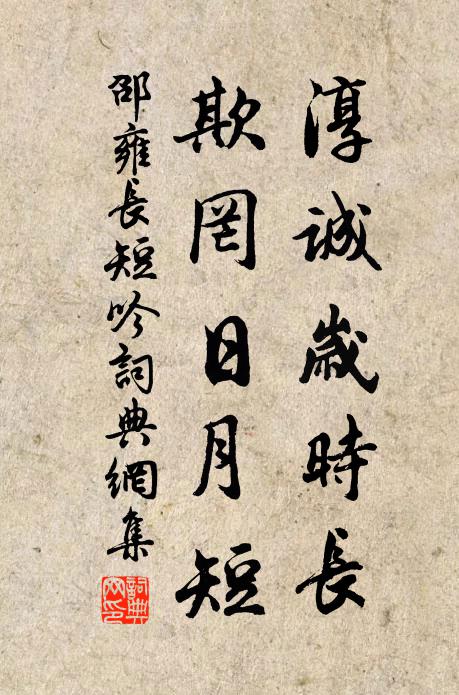 淳誠歲時長
欺罔日月短
邵雍長短吟詞典網集
詞典网印